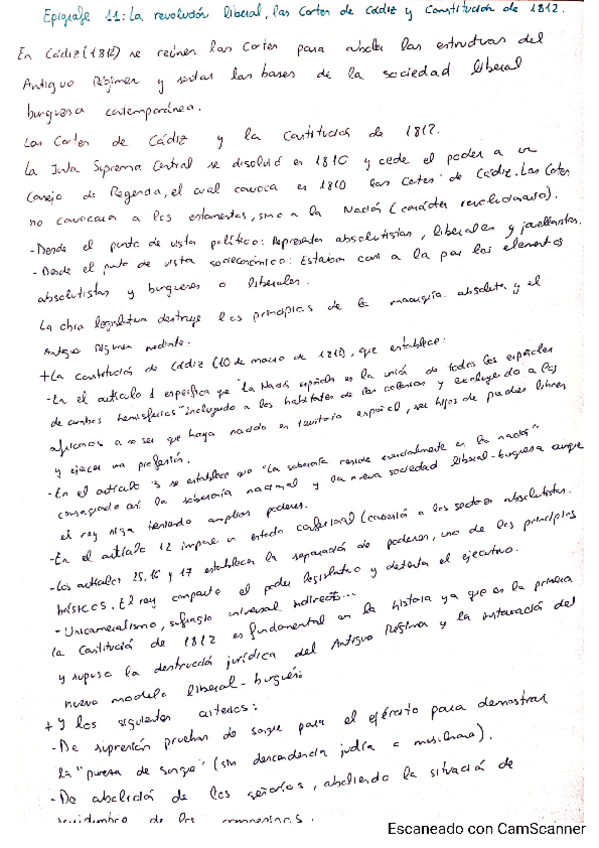 Epígrafe 11: La revolución liberal, las Cortes de Cádiz y Constitución de 1812.
En Cádiz (1812) se reúnen las Cortes para abolir las estructuras del
Antiguo Régimen y sentar las bases de la sociedad liberal
burguesa contemporánea.
Las Cortes de Cádiz y la Constitución de 1812.
La Junta Suprema Central se disolvió en 1810 y cede el poder a un
Consejo de Regencia, el cual convoca en 1810 las Cortes de Cádiz. Las Cortes
no convocara a los estamentos, sino a la Nación (carácter revolucionario).
- Desde el punto de vista político: Representan absolutistas, liberales y jovellanistas.
- Desde el punto de vista socioeconómico: Estaban casi a la par los elementos
absolutistas y burgueses o liberales.
La obra legislativa destruye los principios de la monarquía absoluta y el
Antiguo Régimen mediante:
+ La constitución de Cádiz (10 de marzo de 1812), que establece:
- En el artículo 1 especifica que "La Nación española es la unión de todos los españoles
de ambos hemisferios" incluyendo a los habitantes de las colonias y excluyendo a los
africanos a no ser que haya nacido en territorio español, ser hijos de padres libres
y ejercer una profesión.
- En el artículo 3 se establece que "La soberanía reside esencialmente en la nación"
consagrado así la soberanía nacional y la nueva sociedad liberal-burguesa aunque
el rey siga teniendo amplios poderes.
- En el artículo 12 impone un estado confesional (concesión a los sectores absolutistas.
- Los artículos 15, 16 y 17 establecen la separación de poderes, uno de los principios
básicos. El rey comparte el poder legislativo y detenta el ejecutivo.
- Unicameralismo, sufragio universal indirecto...
La Constitución de 1812 es fundamental en la historia ya que es la primera
y supuso la destrucción jurídica del Antiguo Régimen y la instauración del
nuevo modelo liberal-burgués
+ Y los siguientes
- De supresión pruebas de sangre para el ejército para demostrar
la "pureza de sangre" (sin descendencia judía o musulmana).
- De abolición de los señoríos, aboliendo la situación de
servidumbre de los campesinos.
Escaneado con CamScanner